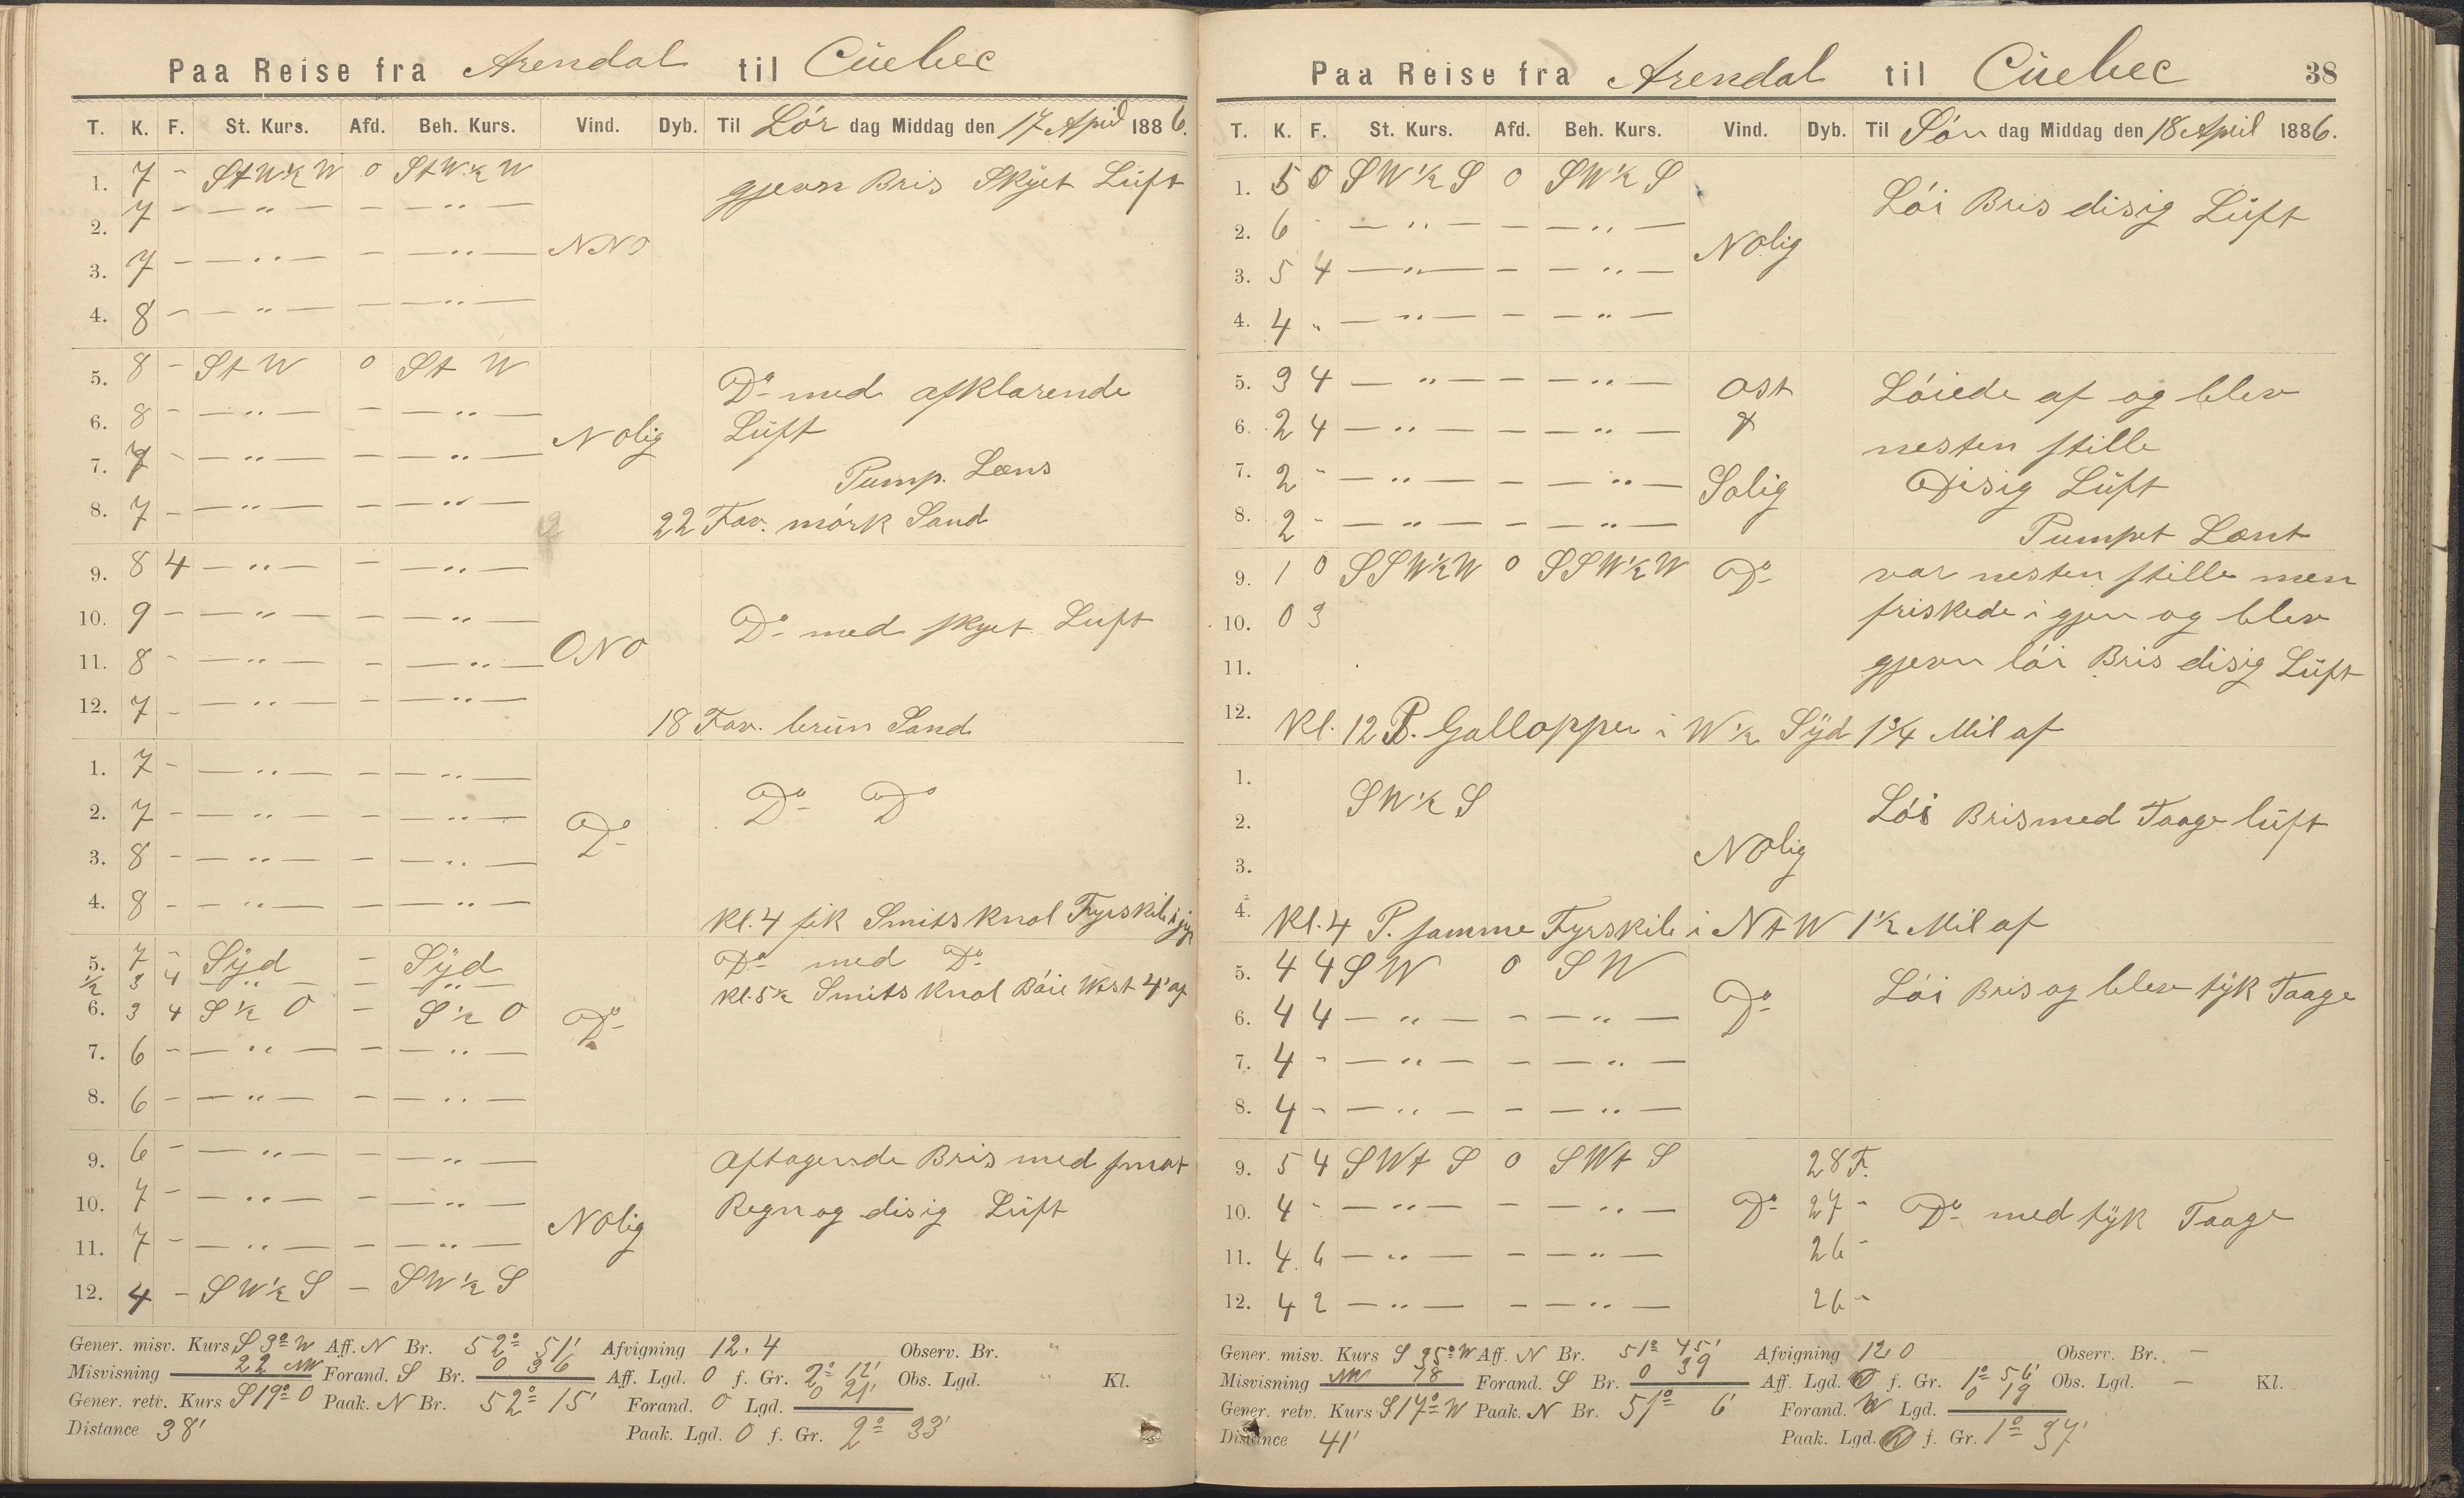 Paa Reise fra Arendal til Cüebec
T. K. F. St. Kurs. Afd. Beh. Kurs. Vind. Dyb. Til Lör dag Middag den 17 April 1886.
1. 7 - StW½W 0 StW½W gjevn Bris Skÿet Lüft
2. 7 - — " — - — " —
3. 7 - — " — - — " — NNO
4. 8 - — " — - — " —
5. 8 - St W 0 St W Do med afklarende
6. 8 - — " — - — " — Nolig Lüft
7. 7 - — " — - — " — Pump. Læns
8. 7 - — " — - — " — 22 Fav. mörk Sand
9. 8 4 — " — - — " —
10. 9 - — " — - — " — Do med skyet Luft
11. 8 - — " — - — " — ONO
12. 7 - — " — - — " — 18 Fav. brün Sand
1. 7 - — " — - — " —
2. 7 - — " — - — " — Do Do Do
3. 8 - — " — - — " —
4. 8 - — " — - — " — Kl. 4 fik Smits Knol Fyrskib i
5. 7 - Sÿd - Sÿd Do med Do
½ 3 4 — " — - — " — Kl. 5½ Smits Knol Böie West 4' af
6. 3 4 S½O - S½O Do
7. 6 - — " — - — " —
8. 6 - — " — - — " —
9. 6 - — " — - — " — Aftagende Bris med smat
10. 7 - — " — - — " — NOlig Regn og disig Lüft
11. 7 - — " — - — " —
12. 4 - SW½S - SW½S
Gener. misv. Kurs S 3° W Aff. N Br. 52° 51' Afvigning 12.4 Observ. Br. "
Misvisning 22 NW Forand. S Br. 0 36 Aff. Lgd. O f. Gr. 2° 12' Obs. Lgd. " Kl.
Gener. retv. Kurs S 19° O Paak. N Br. 52° 15' Forand. O Lgd. 0 21'
Distance 38' Paak. Lgd. O f. Gr. 2° 33'
Paa Reise fra Arendal til Cüebec 38
T. K. F. St. Kurs. Afd. Beh. Kurs. Vind. Dyb. Til Sön dag Middag den 18 April 1886.
1. 5 0 SW½S 0 SW½S Löi Bris disig Lüft
2. 6 - — " — - — " — NOlig
3. 5 4 — " — - — " —
4. 4 " — " — - — " —
5. 3 4 — " — - — " — Ost Löiede af og blev
6. 2 4 — " — - — " — & nesten stille
7. 2 - — " — - — " — Solig Disig Lüft
8. 2 - — " — - — " — Pumpet Lænt
9. 1 0 SSW½W 0 SSW½W Do var nesten stille men
10. 0 3 friskede i gjen og blev
11. gjevn löi Bris disig Lüft
12. Kl. 12 P. Galloppen i W½ Sÿd 1¾ Mil af
1.
2. SW½S Löi Bris med Taage lüft
3. NOlig
4. Kl. 4 P. samme Fyrskib i NtW 1½ Mil af
5. 4 4 SW 0 SW Löi Bris og blev tÿk Taage
6. 4 4 — " — - — " — Do
7. 4 - — " — - — " —
8. 4 - — " — - — " —
9. 5 4 SWt S 0 SWt S 28 F.
10. 4 - — " — - — " — Do 27 - Do med tÿk Taage
11. 4 6 — " — - — " — 26 -
12. 4 2 — " — - — " — 26 -
Gener. misv. Kurs S 35° W Aff. N Br. 51° 45' Afvigning 12.0 Observ. Br. -
Misvisning NW 18 Forand. S Br. 0 39 Aff. Lgd. O f. Gr. 1° 56' Obs. Lgd. - Kl.
Gener. retv. Kurs S 17° W Paak. N Br. 51° 6' Forand. W Lgd. 0 19
Distance 41' Paak. Lgd. O f. Gr. 1° 37'